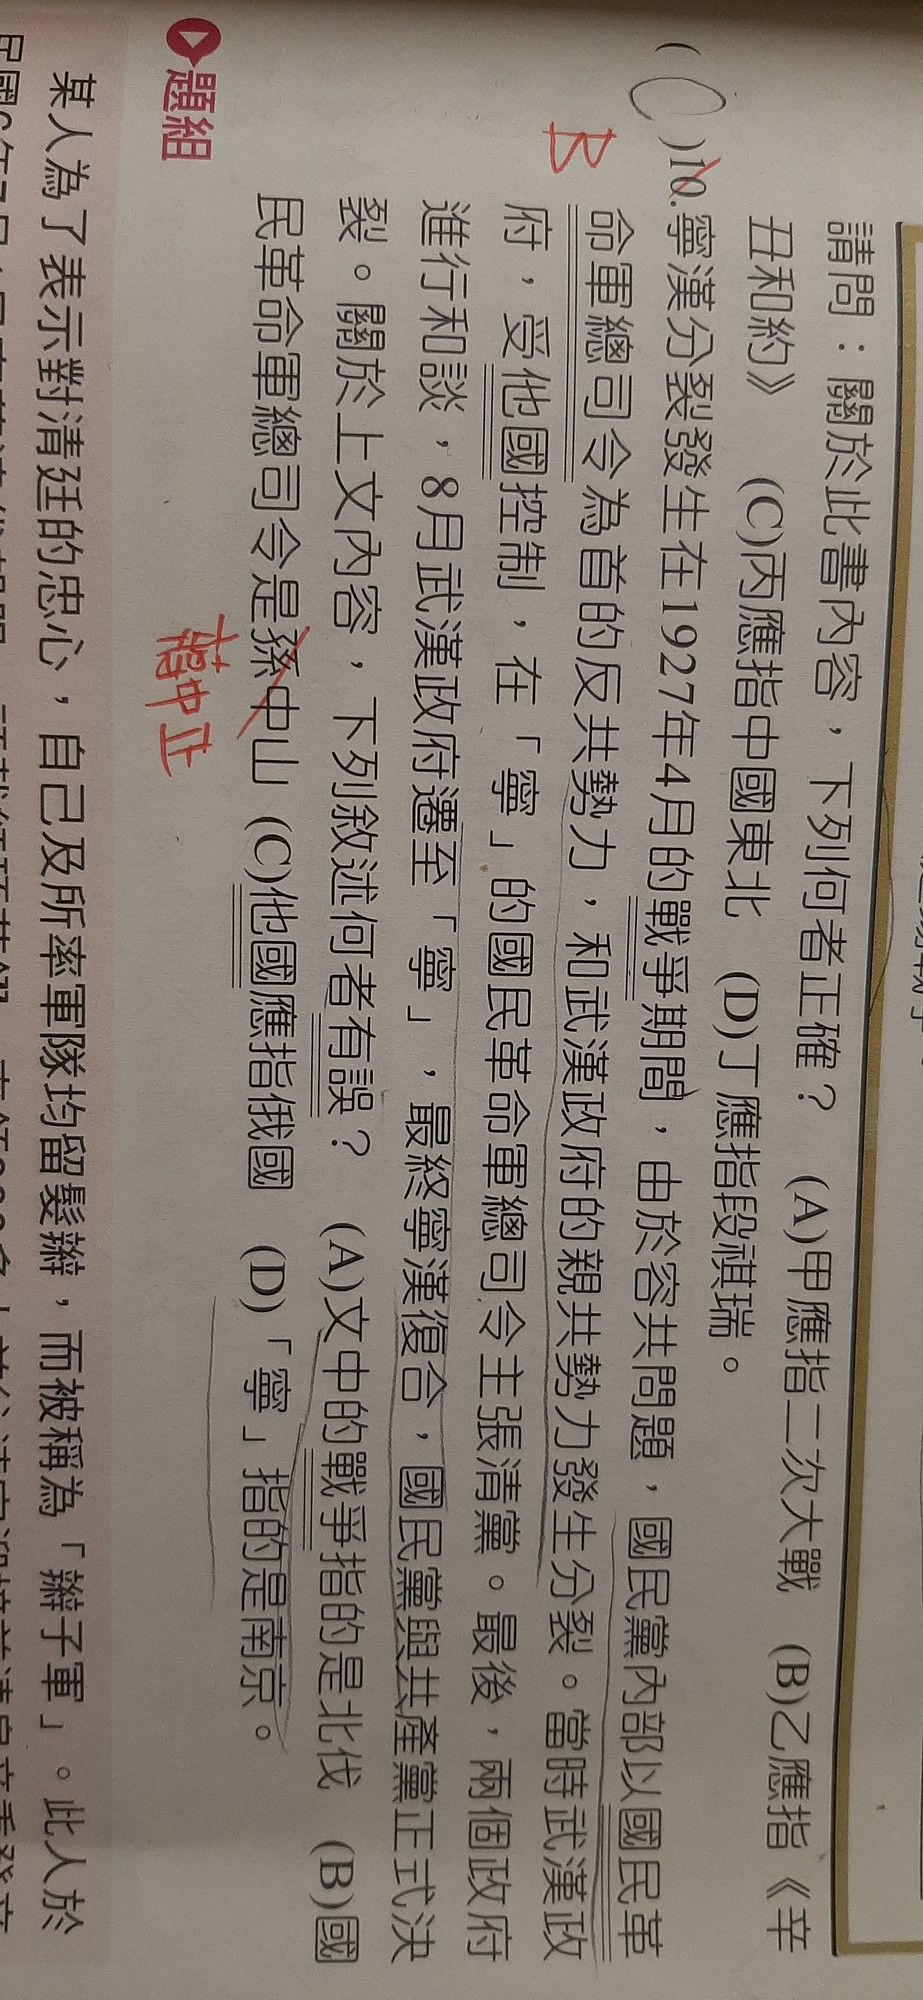 請問：關於此書內容，下列何者正確？　(A)甲應指二次大戰　(B)乙應指《辛
丑和約》　(C)丙應指中國東北　(D)丁應指段祺瑞。
(C)10.寧漢分裂發生在1927年4月的戰爭期間，由於容共問題，國民黨內部以國民革
B
命軍總司令為首的反共勢力，和武漢政府的親共勢力發生分裂。當時武漢政
府，受他國控制，在「寧」的國民革命軍總司令主張清黨。最後，兩個政府
進行和談，8月武漢政府遷至「寧」，最終寧漢復合，國民黨與共產黨正式決
裂。關於上文內容，下列敘述何者有誤？　(A)文中的戰爭指的是北伐　(B)國
民革命軍總司令是孫中山　(C)他國應指俄國　(D)「寧」指的是南京。
蔣中正
題組
某人為了表示對清廷的忠心，自己及所率軍隊均留髮辮，而被稱為「辮子軍」。此人於